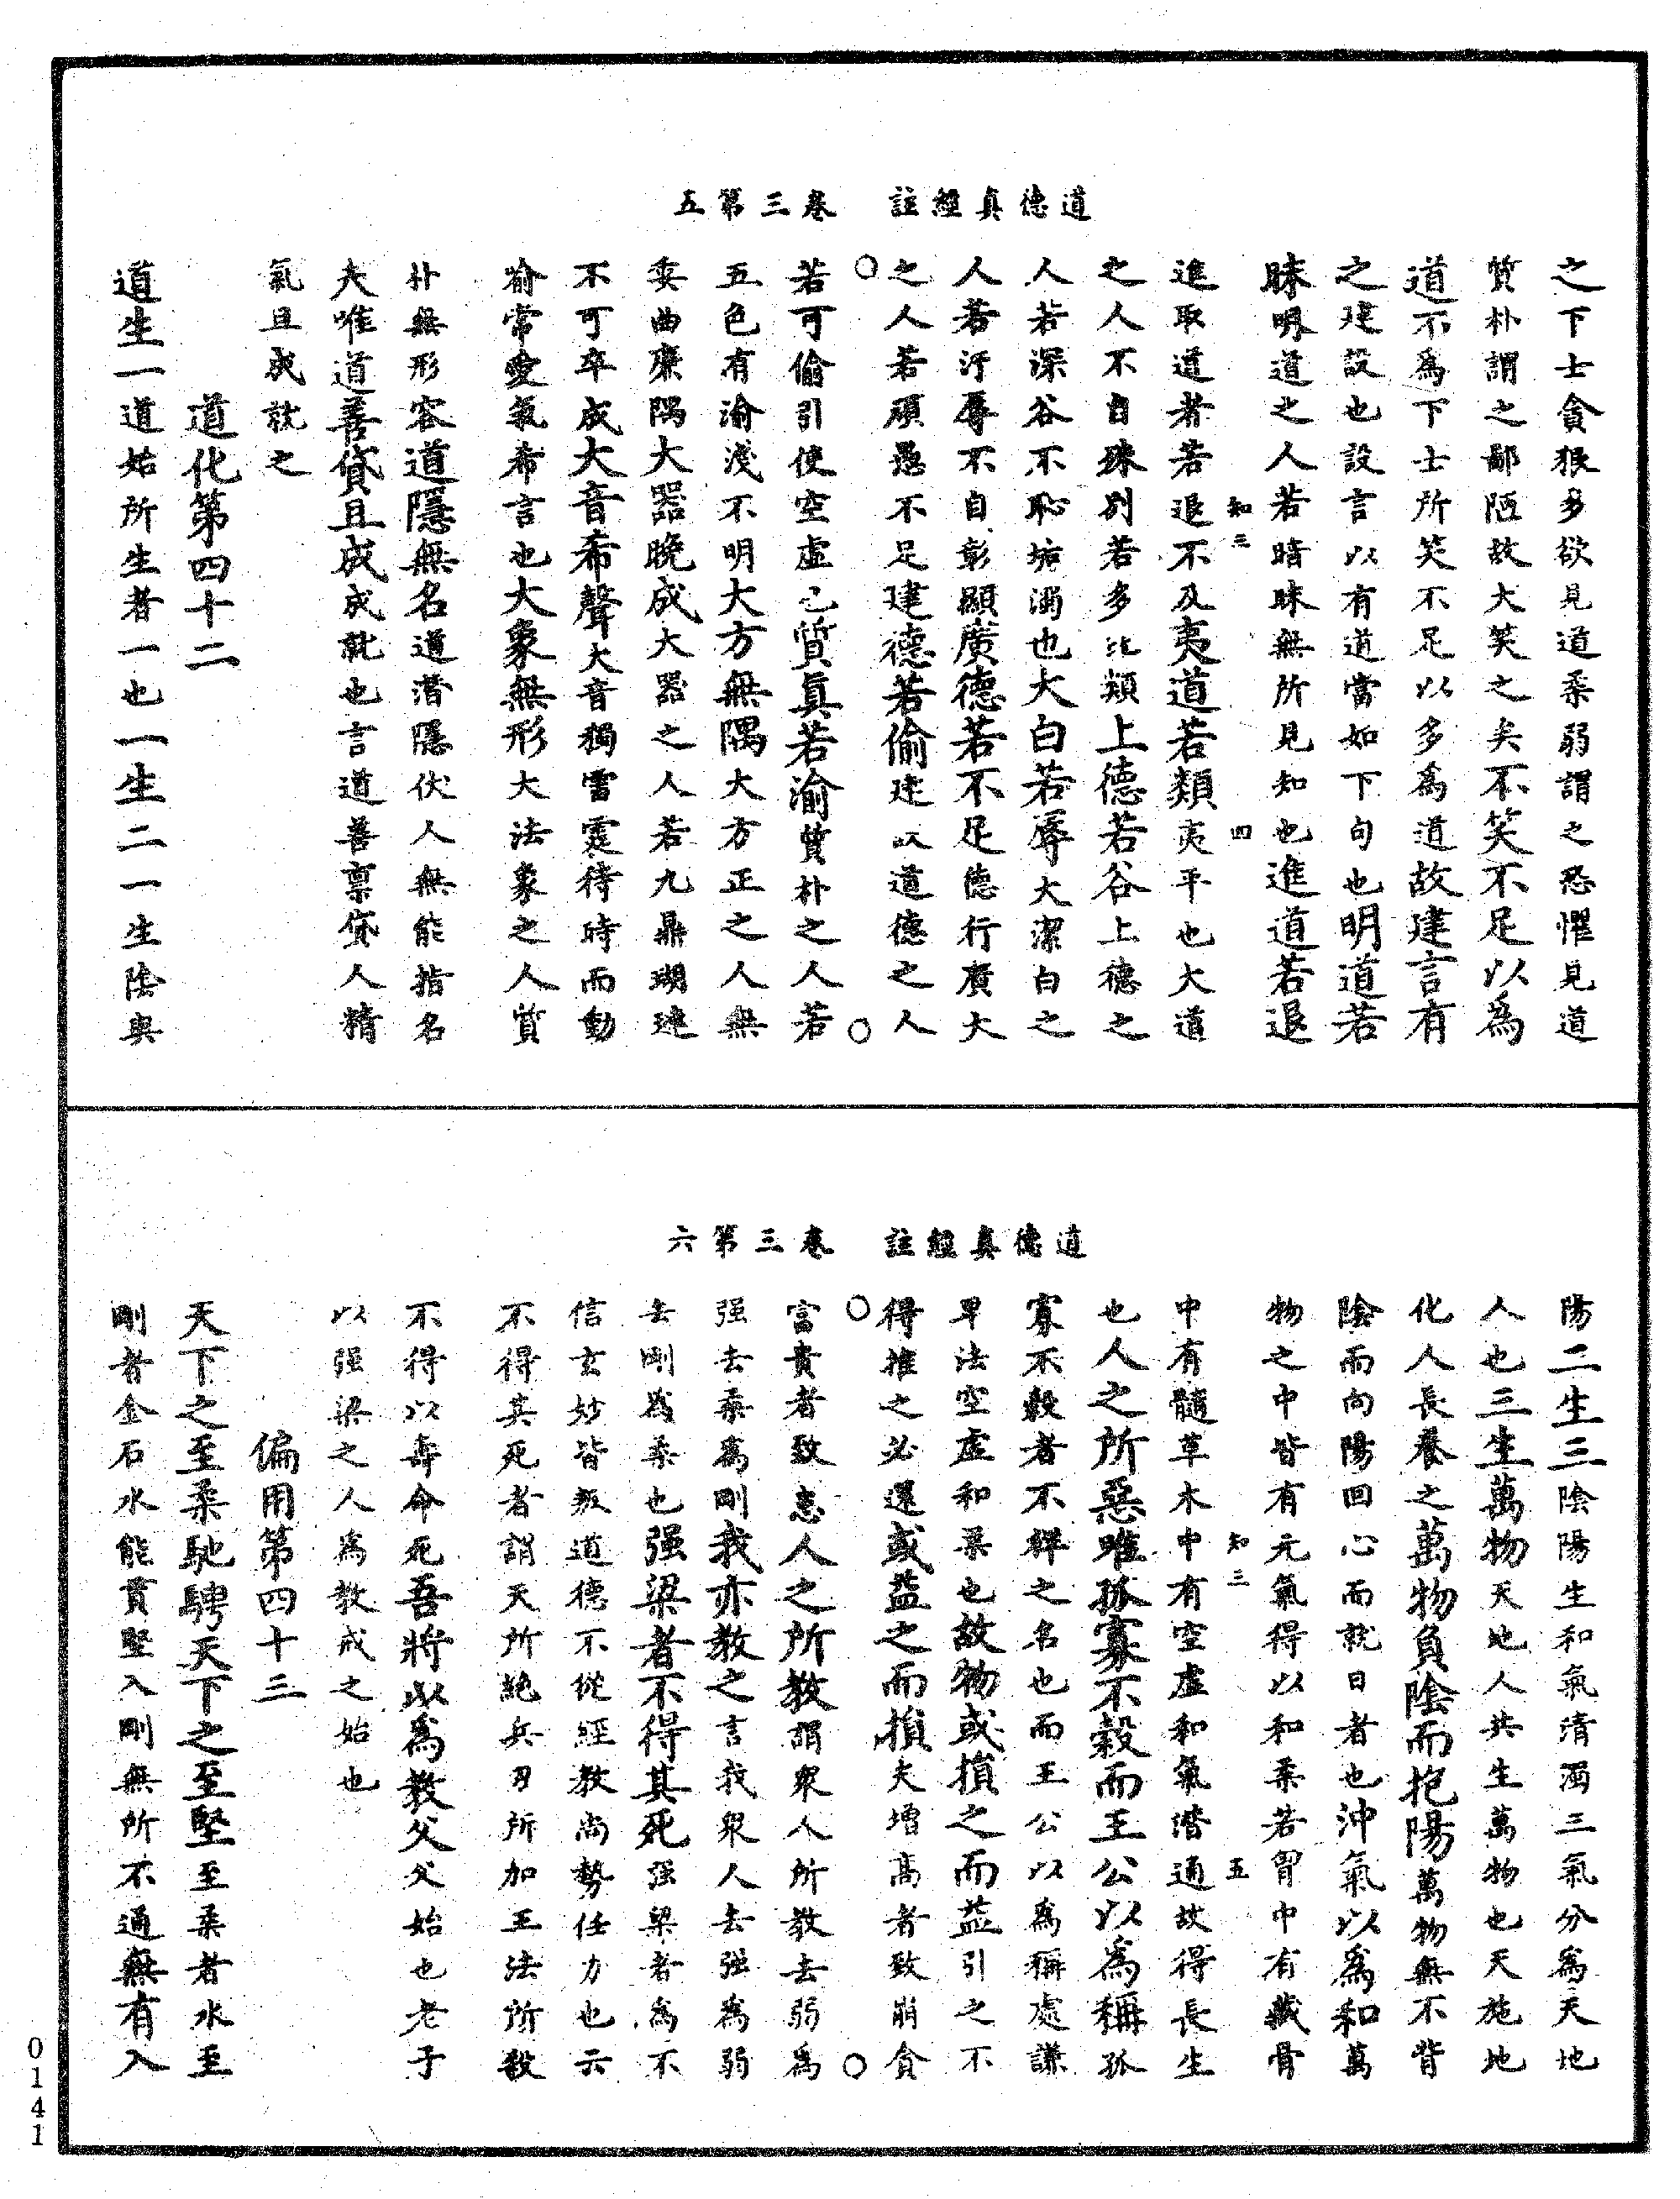 道德真經註　卷三第五
之下士貪狠多欲見道柔弱謂之恐懼見道
質朴謂之鄙陋故大笑之矣不笑不足以爲
道不爲下士所笑不足以多爲道故建言有
之建設也設言以有道當如下句也明道若
昧明道之人若暗昧無所見知也進道若退
知三　四
進取道者若退不及夷道若類夷平也大道
之人不自殊別若多比類上德若谷上德之
人若深谷不恥垢濁也大白若辱大潔白之
人若汙辱不自彰顯廣德若不足德行廣大
之人若頑愚不足建德若偷建以道德之人
若可偷引使空虛也質真若渝質朴之人若
五色有渝淺不明大方無隅大方正之人無
委曲廉隅大器晚成大器之人若九鼎瑚璉
不可卒成大音希聲大音獨雷霆待時而動
喻常愛氣希言也大象無形大法象之人質
朴無形容道隱無名道潛隱伏人無能指名
夫唯道善貸且成成就也言道善稟貸人精
氣且成就之
道化第四十二
道生一道始所生者一也一生二一生陰與
道德真經註　卷三第六
陽二生三陰陽生和氣清濁三氣分爲天地
人也三生萬物天地人共生萬物也天施地
化人長養之萬物負陰而抱陽萬物無不背
陰而向陽回心而就日者也沖氣以爲和萬
物之中皆有元氣得以和柔若胃中有藏骨
知三　五
中有髓草木中有空虛和氣潛通故得長生
也人之所惡唯孤寡不穀而王公以爲稱孤
寡不穀者不祥之名也而王公以爲稱處謙
卑法空虛和柔也故物或損之而益引之不
得推之必還或益之而損夫增高者致崩貪
富貴者致恚人之所教謂衆人所教去弱爲
强去柔爲剛我亦教之言我衆人去强爲弱
去剛爲柔也强梁者不得其死强梁者爲不
信玄妙皆叛道德不從經教尚勢任力也云
不得其死者謂天所絕兵刃所加王法所殺
不得以壽命死吾將以爲教父父始也老子
以强梁之人爲教戒之始也
偏用第四十三
天下之至柔馳騁天下之至堅至柔者水至
剛者金石水能貫堅入剛無所不通無有入
0141